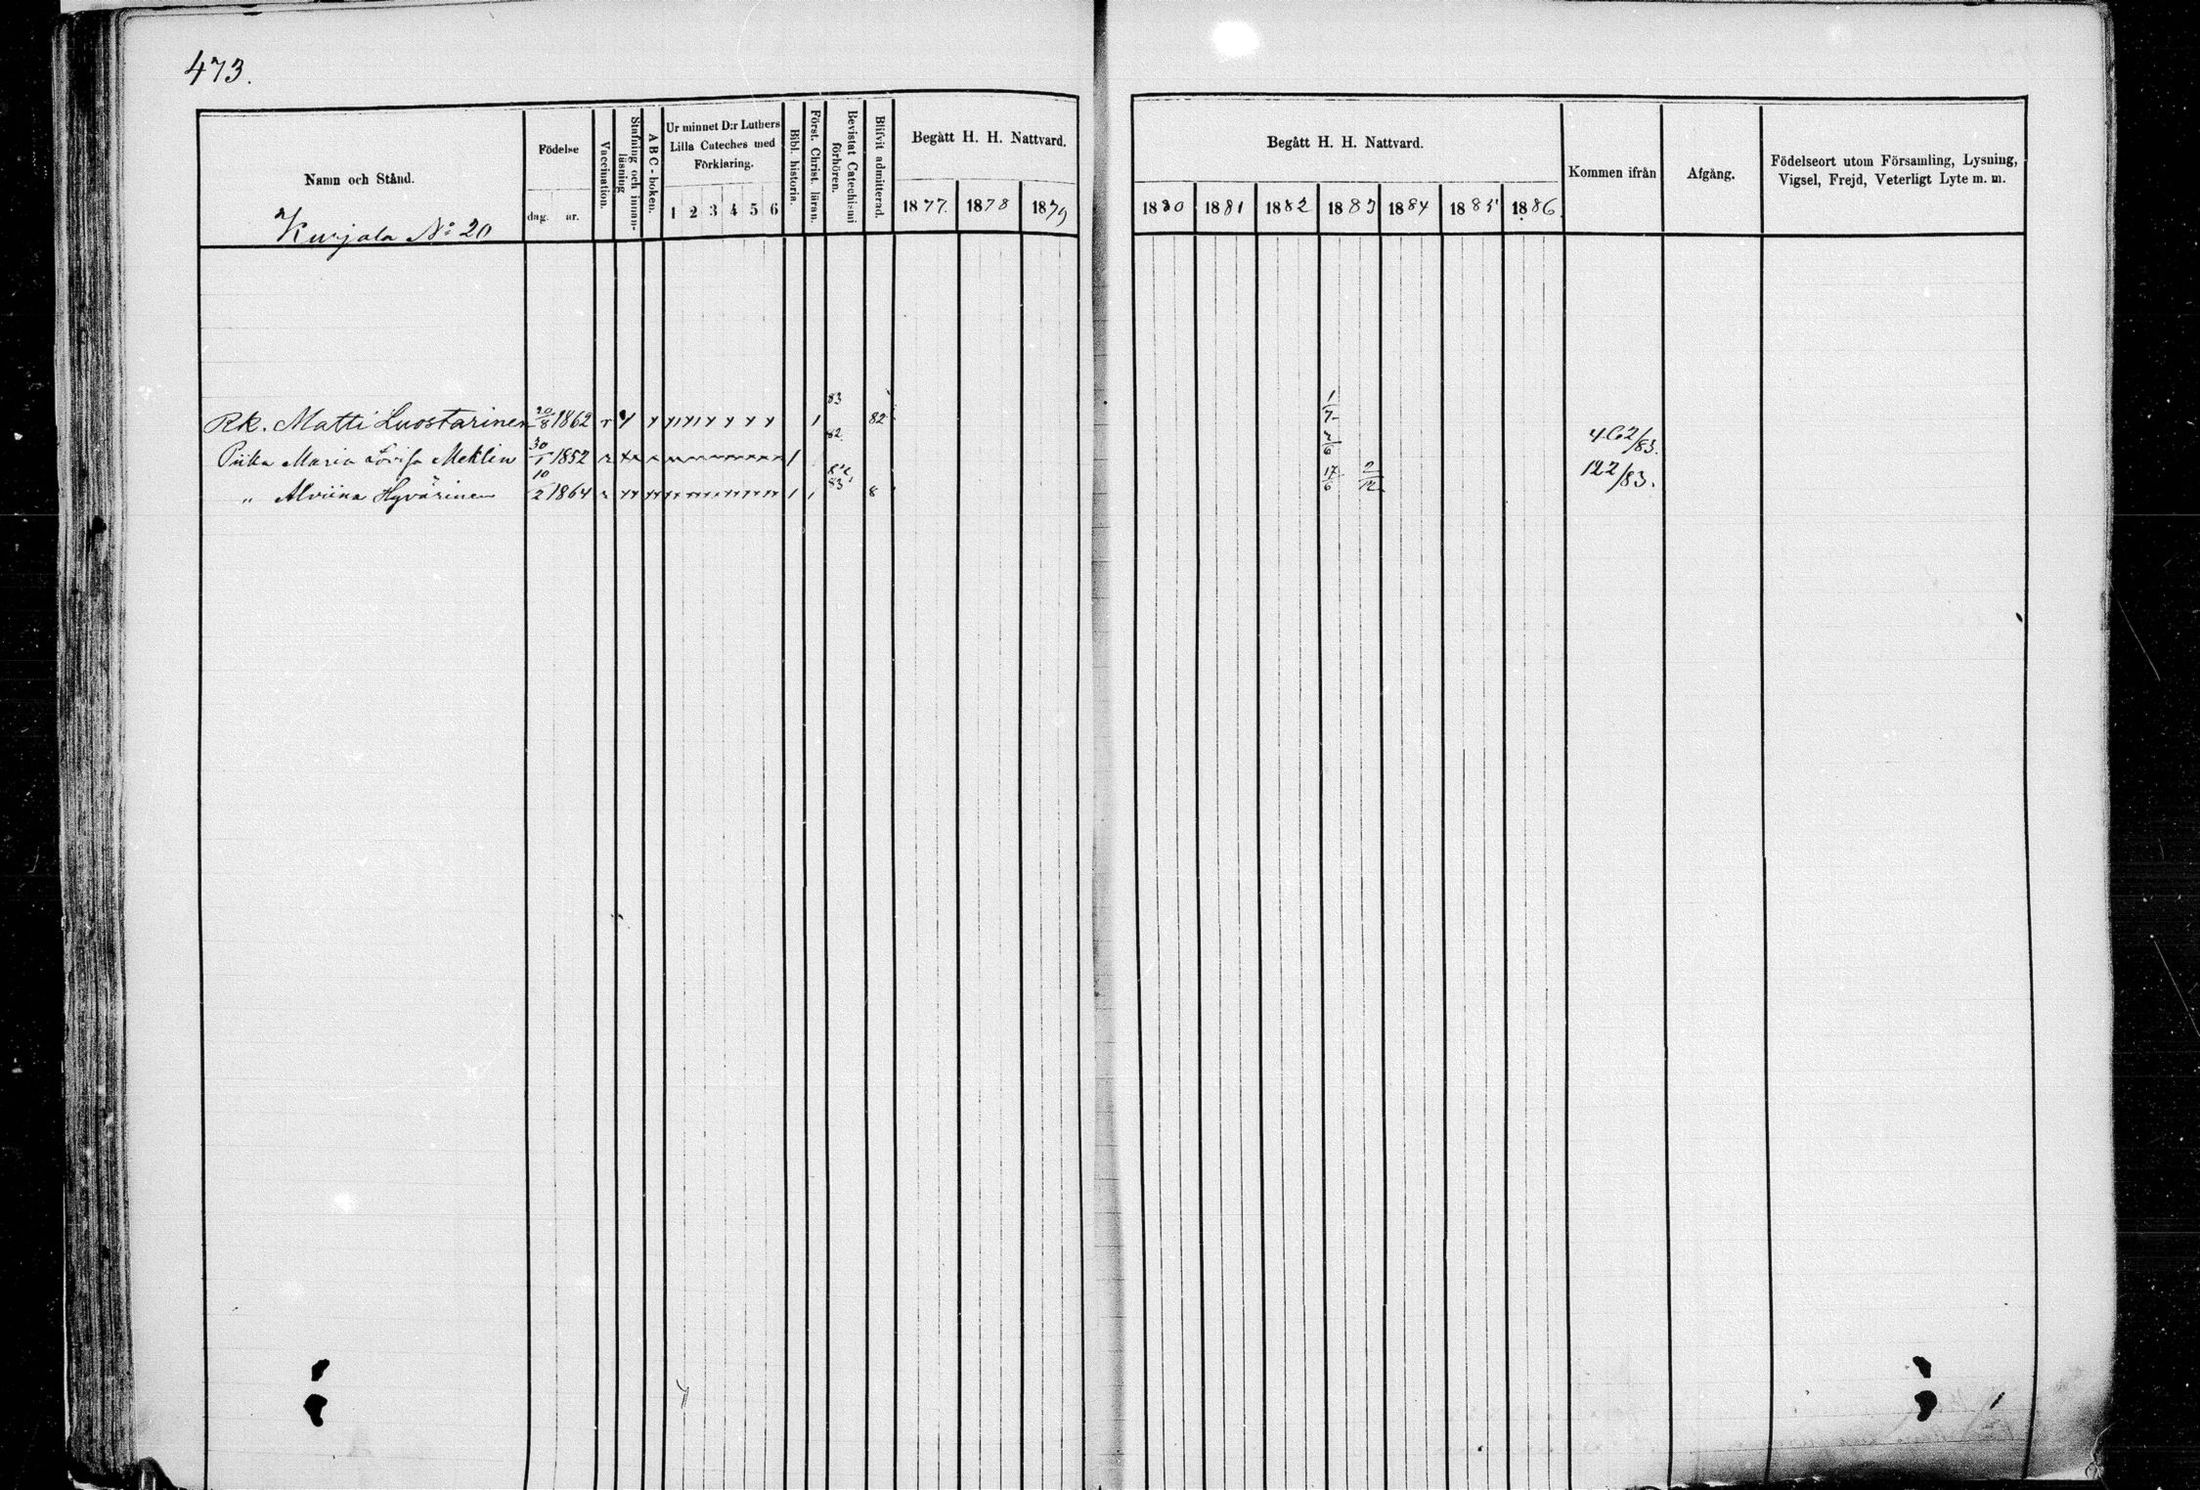 473.
Namn och Stånd.
Kurjala No 20
Födelse
dag. år.
Vaccination.
Stafning och innan-
läsning
A B C - boken.
Ur minnet D:r Luthers
Lilla Cateches med
Förklaring.
1 2 3 4 5 6
Bibl. historia.
Först. Christ. läran.
Bevistat Catechismi
förhören.
Blifvit admitterad.
Begått H. H. Nattvard.
1877. 1878 1879
Begått H. H. Nattvard.
1880 1881 1882 1883 1884 1885 1886.
Kommen ifrån
Afgång.
Födelseort utom Församling, Lysning,
Vigsel, Frejd, Veterligt Lyte m. m.
Rk. Matti Luostarinen 20/8 1862 83 82 1/7
Piika Maria Lovisa Meklin 30/1 1852 82. 2/6 462/83.
" Alviina Hyvärinen 10/2 1864 82, 83 8 17/6 2/12 122/83.